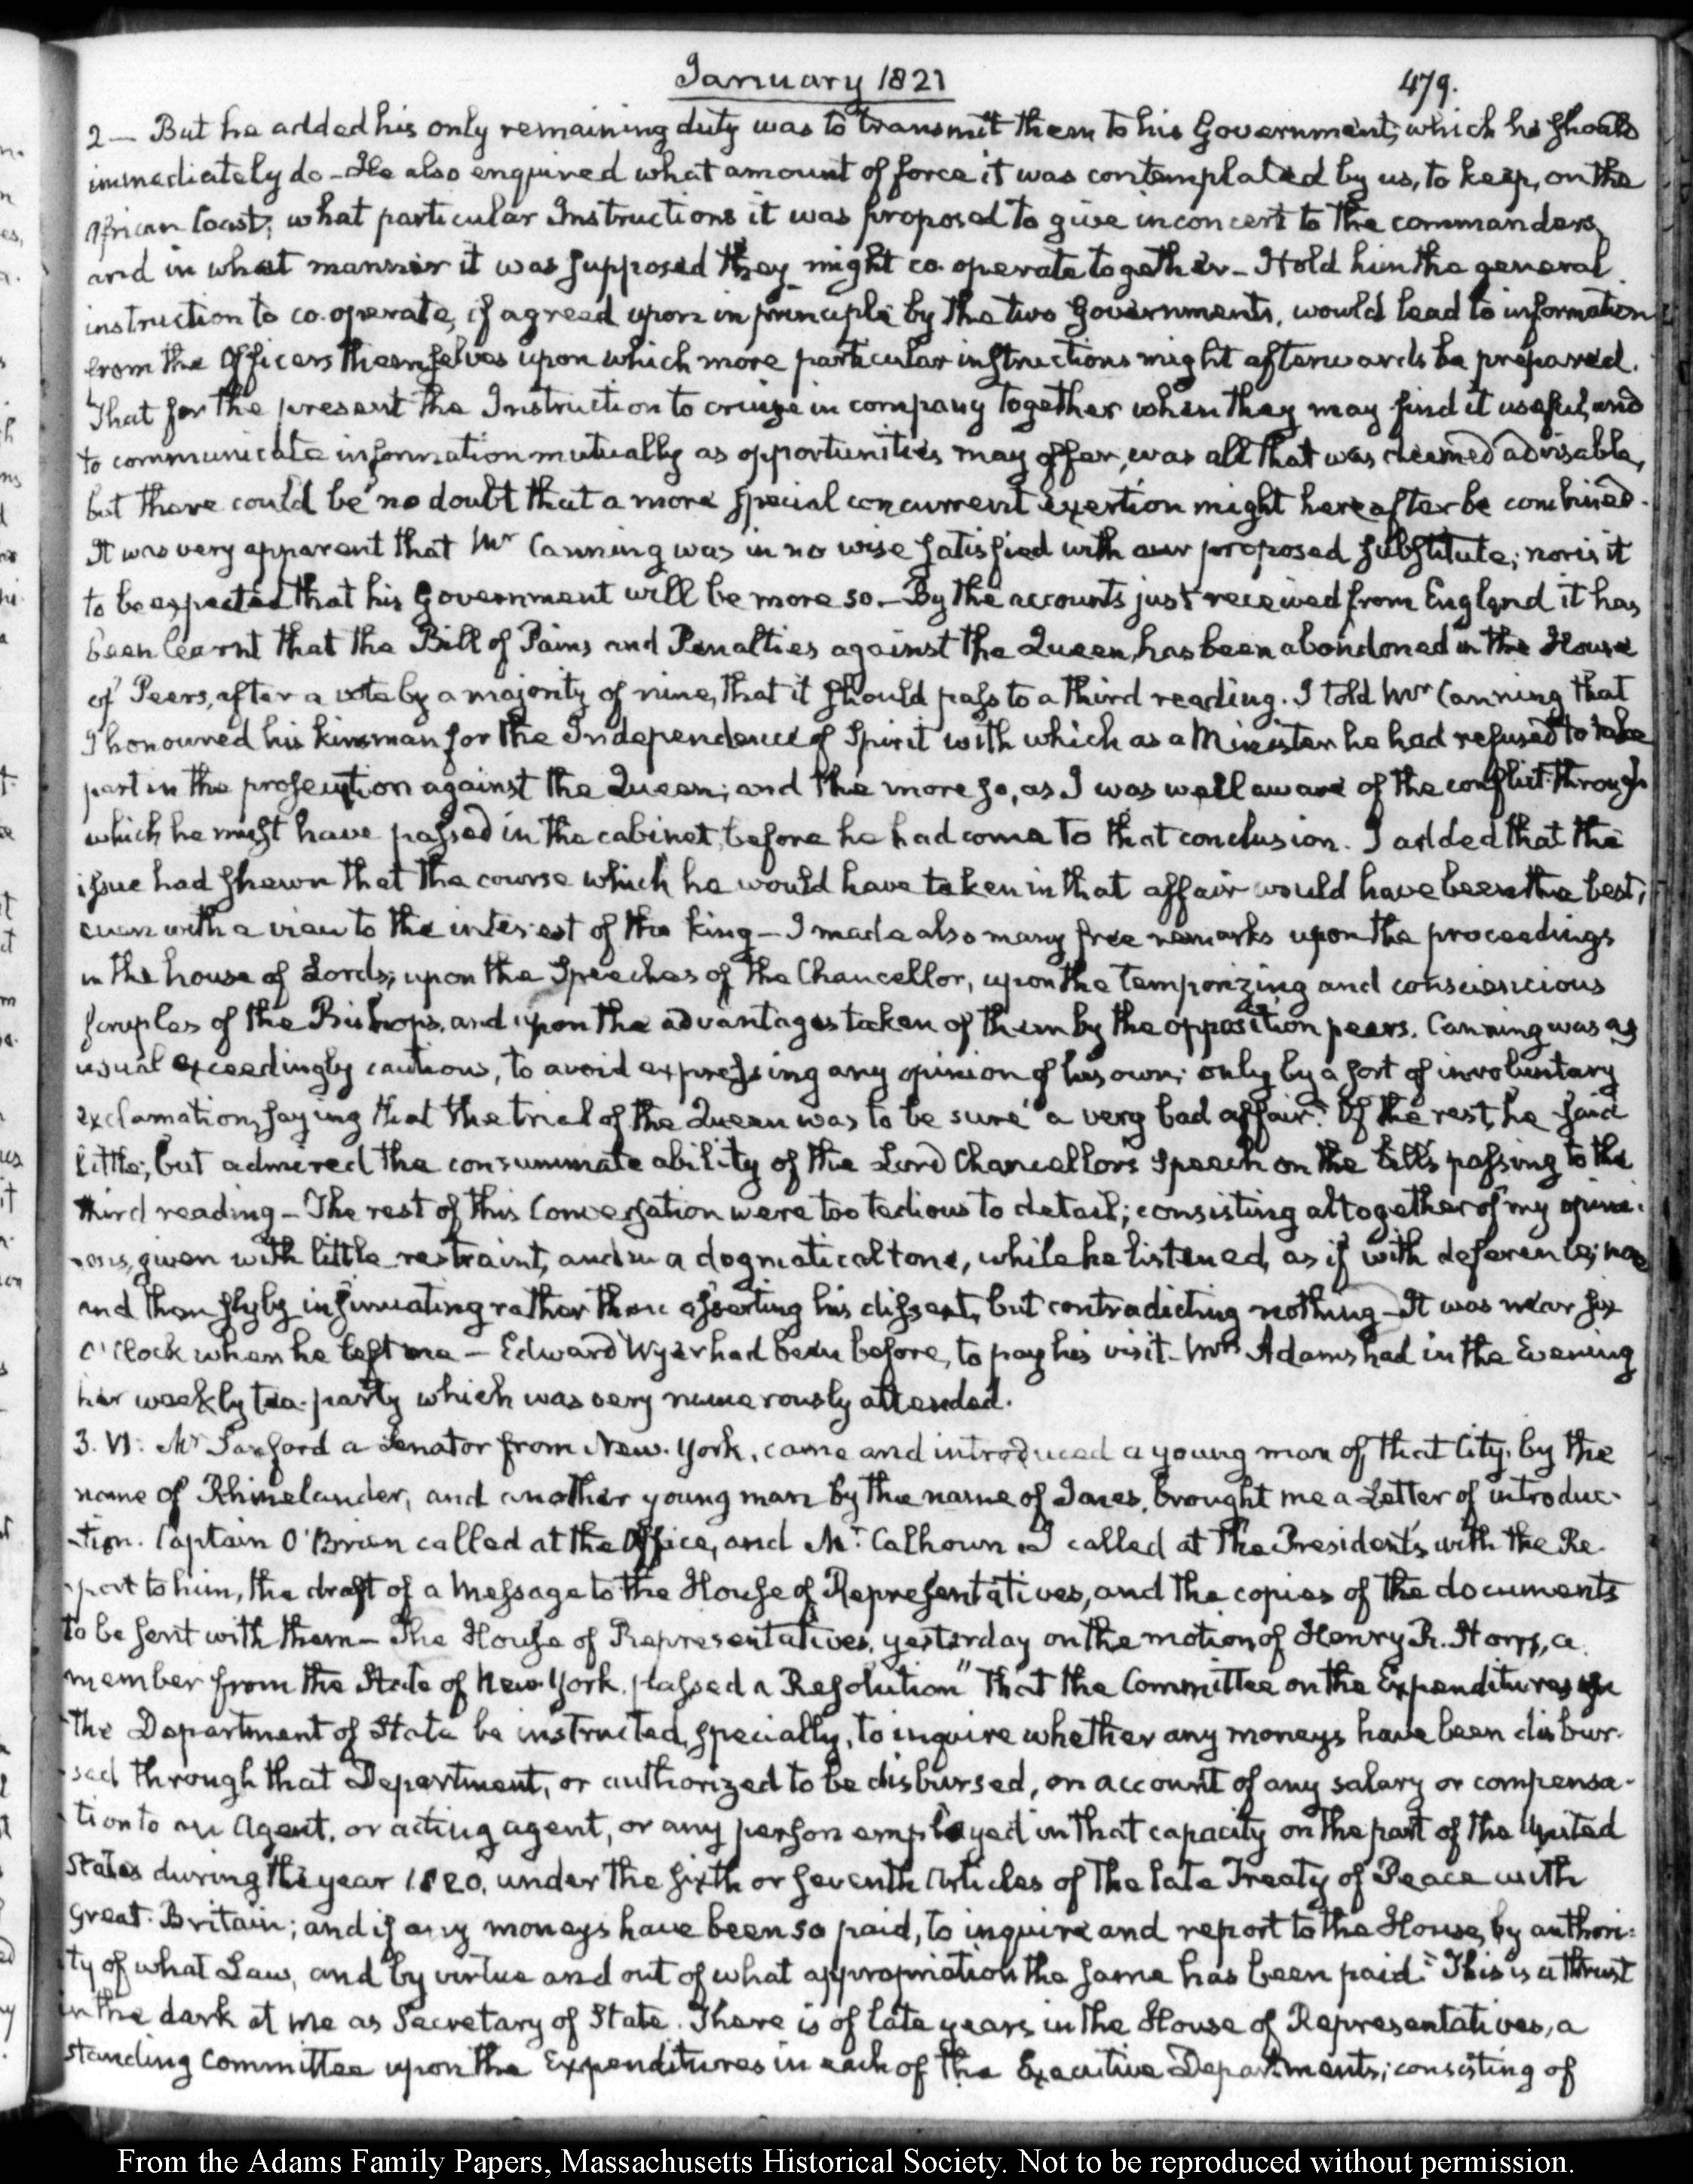 January 1821
479.
2 — But he added his only remaining duty was to transmit them to his Government, which he should
immediately do — He also enquired what amount of force it was contemplated by us, to keep, on the
African Coast; what particular Instructions it was proposed to give in concert to the commanders,
and in what manner it was supposed they might co-operate together — I told him the general
instruction to co-operate, if agreed upon in principle by the two Governments, would lead to information
from the Officers themselves upon which more particular instructions might afterwards be prepared.
That for the present the Instruction to cruize in company together when they may find it useful, and
to communicate information mutually as opportunities may offer, was all that was deemed advisable,
but there could be no doubt that a more special concurrent exertion might hereafter be combined.
It was very apparent that Mr Canning was in no wise satisfied with our proposed substitute; nor is it
to be expected that his Government will be more so — By the accounts just received from England it has
been learnt that the Bill of Pains and Penalties against the Queen, has been abandoned in the House
of Peers, after a vote by a majority of nine, that it should pass to a third reading. I told Mr Canning that
I honoured his kinsman for the Independence of Spirit with which as a Minister he had refused to take
part in the prosecution against the Queen; and the more so, as I was well aware of the conflict through
which he must have passed in the cabinet, before he had come to that conclusion. I added that the
issue had shewn that the course which he would have taken in that affair would have been the best,
even with a view to the interest of the King — I made also many free remarks upon the proceedings
in the house of Lords; upon the Speeches of the Chancellor, upon the temporizing and consciencious
scruples of the Bishops, and upon the advantages taken of them by the opposition peers. Canning was as
usual exceedingly cautious, to avoid expressing any opinion of his own; only by a sort of involuntary
exclamation, saying that the trial of the Queen was to be sure "a very bad affair." Of the rest, he said
little; but admired the consummate ability of the Lord Chancellor's Speech on the bill's passing to the
third reading — The rest of this Conversation were too tedious to detail; consisting altogether of my opini-
-ons, given with little restraint, and in a dogmatical tone, while he listened, as if with deference; now
and then slyly insinuating rather than asserting his dissent, but contradicting nothing — It was near six
O'Clock when he left me — Edward Wyer had been before, to pay his visit — Mrs Adams had in the Evening
her weekly tea-party which was very numerously attended.
3. VI: Mr Sanford a Senator from New-York, came and introduced a young man of that City, by the
name of Rhinelander, and another young man by the name of Jones, brought me a Letter of introduc-
-tion. Captain O'Brien called at the Office, and Mr Calhoun. I called at the President's with the Re-
-port to him, the draft of a Message to the House of Representatives, and the copies of the documents
to be sent with them — The House of Representatives, yesterday on the motion of Henry R. Storrs, a
member from the State of New-York, passed a Resolution "That the Committee on the Expenditures in
the Department of State be instructed, specially, to inquire whether any moneys have been disbur-
-sed through that Department, or authorized to be disbursed, on account of any salary or compensa-
tion to an Agent, or acting agent, or any person employed in that capacity on the part of the United
States during the year 1820, under the sixth or seventh Articles of the late Treaty of Peace with
Great-Britain; and if any moneys have been so paid, to inquire and report to the House, by authori-
ty of what Law, and by virtue and out of what appropriation the same has been paid." This is a thrust
in the dark at me as Secretary of State. There is of late years, in the House of Representatives, a
standing Committee upon the Expenditures in each of the Executive Departments; consisting of
From the Adams Family Papers, Massachusetts Historical Society. Not to be reproduced without permission.